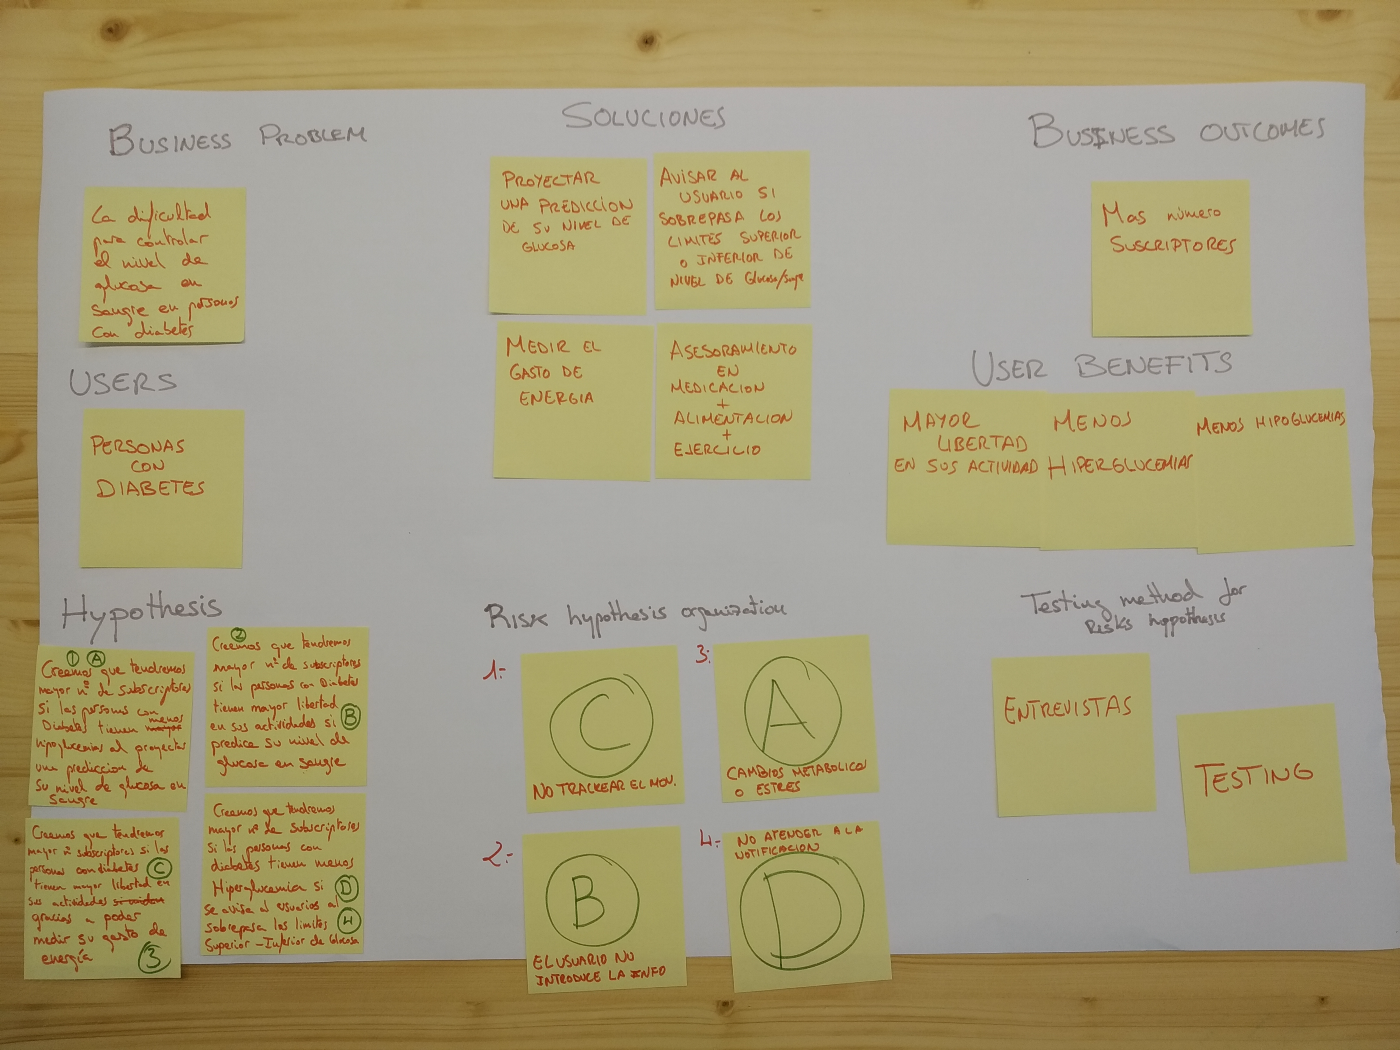 BUSINESS PROBLEM
La dificultad
para controlar
el nivel de
glucosa en
sangre en personas
con diabetes
USERS
PERSONAS
CON
DIABETES
SOLUCIONES
PROYECTAR
UNA PREDICCION
DE SU NIVEL DE
GLUCOSA
AVISAR AL
USUARIO SI
SOBREPASA LOS
LIMITES SUPERIOR
O INFERIOR DE
NIVEL DE Glucosa/
MEDIR EL
GASTO DE
ENERGIA
ASESORAMIENTO
EN
MEDICACION
+
ALIMENTACION
+
EJERCICIO
BUSINESS OUTCOMES
Mas número
SUSCRIPTORES
USER BENEFITS
MAYOR
LIBERTAD
EN SUS ACTIVIDAD
MENOS
HIPERGLUCEMIAS
MENOS HIPOGLUCEMIAS
Hypothesis
1 A
Creemos que tendremos
mayor nº de subscriptores
si las personas con
Diabetes tienen menos
hipoglucemias al proyectar
una prediccion de
su nivel de glucosa en
Sangre
2
Creemos que tendremos
mayor nº de subscriptores
si las personas con Diabetes
tienen mayor libertad
en sus actividades si B
predice su nivel de
glucosa en sangre
Creemos que tendremos
mayor nº subscriptores si las
personas con diabetes C
tienen mayor libertad en
sus actividades
gracias a poder
medir su gasto de
energía 3
Creemos que tendremos
mayor nº de subscriptores
si las personas con
diabetes tienen menos
Hiperglucemia si D
se avisa al usuarios al
sobrepasa los limites 4
Superior - Inferior de Glucosa
RISK hypothesis organization
1:-
C
NO TRACKEAR EL MOV.
2:-
B
EL USUARIO NO
INTRODUCE LA INFO
3:
A
CAMBIOS METABOLICOS
O ESTRES
4:-
NO ATENDER A LA
NOTIFICACION
D
Testing method for
Risks hyppothesis
ENTREVISTAS
TESTING